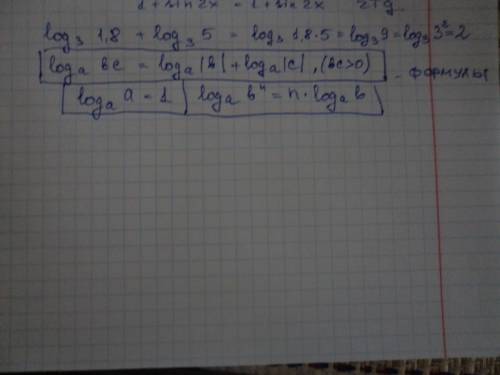 1 + sin 2x = 1 + sin 2x чтд.
log₃ 1,8 + log₃ 5 = log₃ 1,8·5 = log₃ 9 = log₃ 3² = 2
logₐ bc = logₐ |b| + logₐ |c|, (bc>0) - формулы
logₐ a = 1 logₐ bⁿ = n · logₐ b